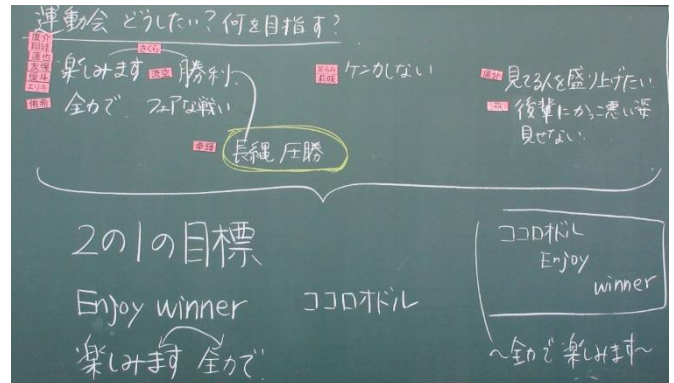 運動会 どうしたい？何を目指す？
康介
蓮也
友保
優斗
エリキ
さくら
楽しみます
勝利
ケンカしない
莉咲
見てる人を盛り上げたい
侑希
全力で フェアな戦い
後輩にかっこ悪い姿
見せない
幸輝
長縄 圧勝
2の1の目標
Enjoy winner
ココロオドル
楽しみます 全力で
ココロオドル
Enjoy
winner
～全力で楽しみます～